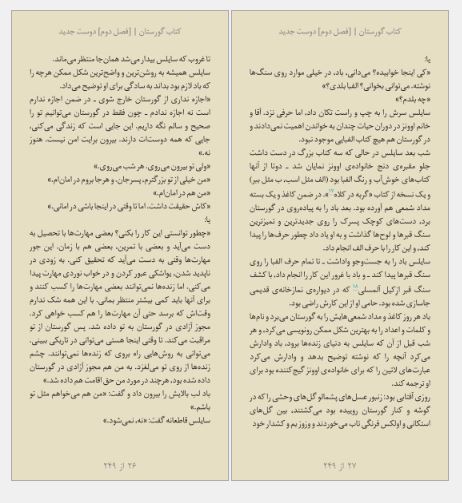 کتاب گورستان | [فصل دوم] دوست جدید
تا غروب که سایلس بیدار می‌شد همان‌جا منتظر می‌ماند.
سایلس همیشه به روشن‌ترین و واضح‌ترین شکل ممکن هرچه را
که باد لازم بود بداند به سادگی برای او توضیح می‌داد.
«اجازه نداری از گورستان خارج شوی ـ در ضمن اجازه ندارم
است نه اجازه ندادم ـ چون فقط در گورستان می‌توانیم تو را
صحیح و سالم نگه داریم. این جایی است که زندگی می‌کنی،
جایی که همه دوستانت دارند. بیرون برایت امن نیست. هنوز
نه.»
«ولی تو بیرون می‌روی. هر شب می‌روی.»
«من خیلی از تو بزرگترم، پسرجان. و هرجا بروم در امان‌ام.»
«من هم در امان‌ام.»
«کاش حقیقت داشت. اما تا وقتی در اینجا باشی در امانی.»
یا:
«چطور توانستی این کار را بکنی؟ بعضی مهارت‌ها با تحصیل به
دست می‌آید و بعضی با تمرین، بعضی هم با زمان. این جور
مهارت‌ها وقتی به دست می‌آید که تحقیق کنی. به زودی در
ناپدید شدن، یواشکی عبور کردن و در خواب نوردی مهارت پیدا
می‌کنی. اما زنده‌ها نمی‌توانند بعضی مهارت‌ها را کسب کنند و
برای آنها باید کمی بیشتر منتظر بمانی. با این همه شک ندارم
وقت‌اش که برسد حتی آن مهارت‌ها را هم کسب خواهی کرد.
مجوز آزادی در گورستان به تو داده شد. پس گورستان از تو
مراقبت می‌کند. تا وقتی اینجا هستی می‌توانی در تاریکی ببینی.
می‌توانی به روش‌هایی راه بروی که زنده‌ها نمی‌توانند. چشم
زنده‌ها از روی تو می‌لغزد. به من هم مجوز آزادی در گورستان
داده شده بود، هرچند در مورد من حق اقامت هم داده شد.»
باد لب بالایش را بیرون داد و گفت: «من هم می‌خواهم مثل تو
باشم.»
سایلس قاطعانه گفت: «نه، نمی‌شود.»
۲۶ از ۲۴۹
کتاب گورستان | [فصل دوم] دوست جدید
یا:
«کی اینجا خوابیده؟ می‌دانی، باد، در خیلی موارد روی سنگ‌ها
نوشته. می توانی بخوانی؟ الفبا بلدی؟»
«چه بلدم؟»
سایلس سرش را به چپ و راست تکان داد، اما حرفی نزد. آقا و
خانم اوونز در دوران حیات چندان به خواندن اهمیت نمی‌دادند و
در گورستان هم هیچ کتاب الفبایی موجود نبود.
شب بعد سایلس در حالی که سه کتاب بزرگ در دست داشت
جلو مقبره‌ی دنج خانواده‌ی اوونز نمایان شد ـ دوتا از آنها
کتاب‌های خوش‌آب و رنگ الفبا بود (الف مثل اسب، ب مثل ببر)
و یک نسخه از کتاب «گربه در کلاه»۱۷ ه. در ضمن کاغذ و یک بسته
مداد شمعی هم آورده بود. بعد باد را به پیاده‌روی در گورستان
برد، دست‌های کوچک پسرک را روی جدیدترین و تمیزترین
سنگ قبرها و لوح‌ها گذاشت و به او یاد داد چطور حرف‌ها را پیدا
کند، و این کار را با حرف الف انجام داد.
سایلس باد را به جست‌وجو واداشت ـ تا تمام حرف الفبا را روی
سنگ قبرها پیدا کند ـ و باد با غرور این کار را انجام داد، با کشف
سنگ قبر ازکیل المسلی۱۸ که در دیواره‌ی نمازخانه‌ی قدیمی
جاسازی شده بود. حامی او از این کارش راضی بود.
باد هر روز کاغذ و مداد شمعی‌هایش را به گورستان می‌برد و نام‌ها
و کلمات و اعداد را به بهترین شکل ممکن رونویسی می‌کرد، و هر
شب قبل از آن که سایلس به دنیای زنده‌ها برود، باد وادارش
می‌کرد آنچه را که نوشته توضیح بدهد و وادارش می‌کرد
عبارت‌های لاتین را که برای خانواده‌ی اوونز گیج‌کننده بود برای
او ترجمه کند.
روزی آفتابی بود: زنبور عسل‌های پشمالو گل‌های وحشی را که در
گوشه و کنار گورستان روییده بود می‌گشتند، بین گل‌های
استکانی و اولکس فرنگی تاب می‌خوردند و وزوز بم و کشدار خود
۲۷ از ۲۴۹